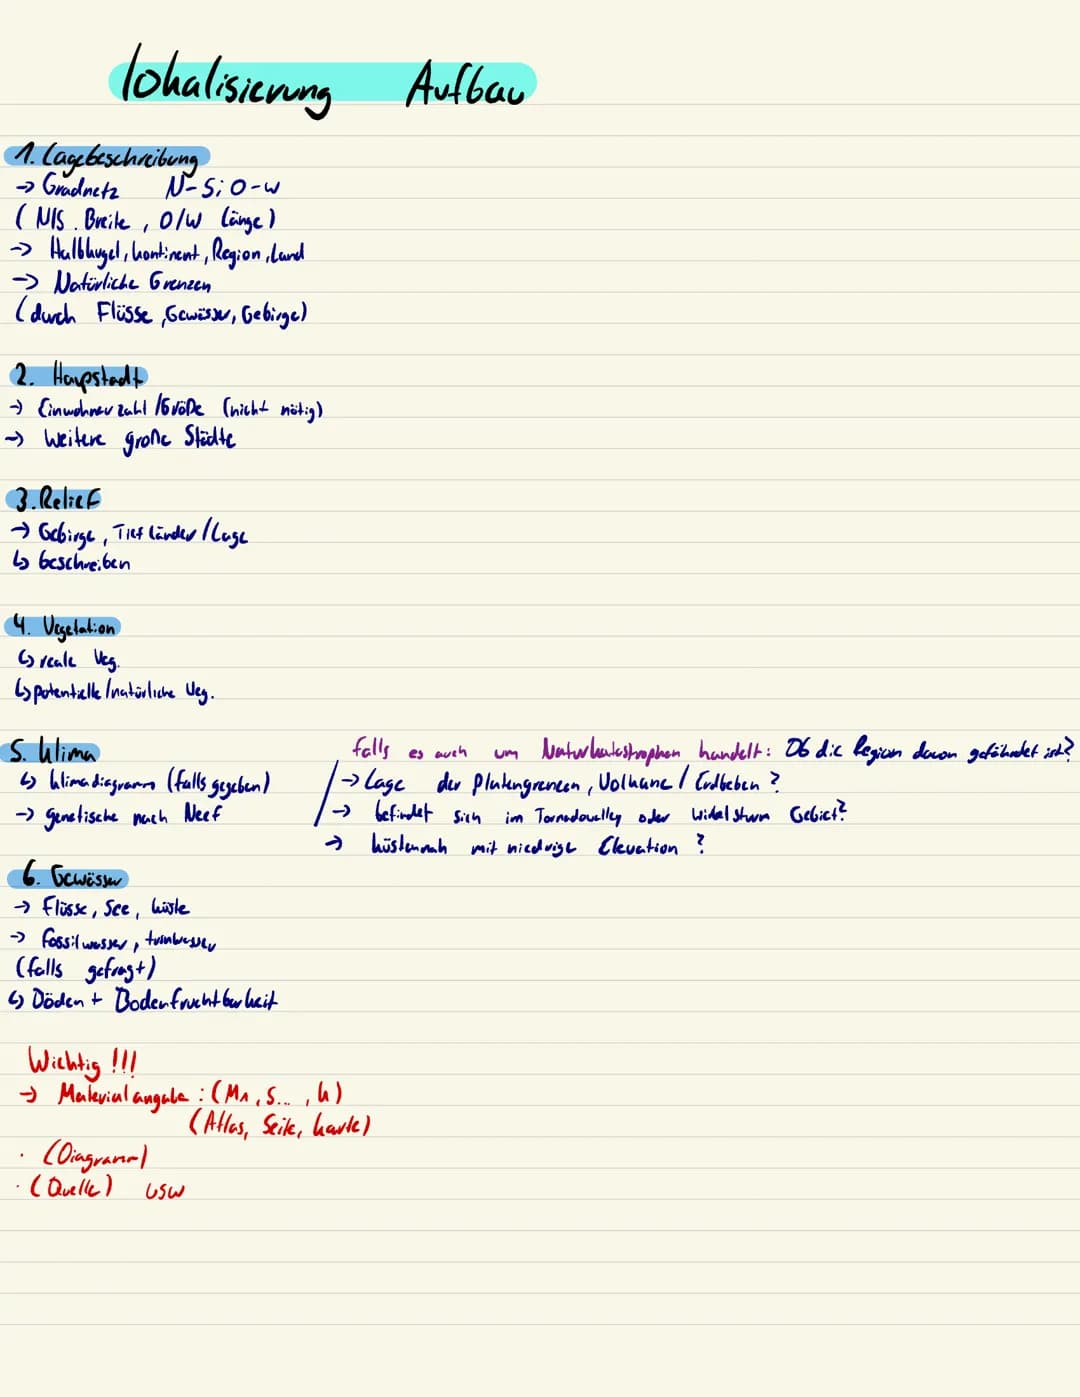 Lokalisierung Aufbau
1. Lagebeschreibung
→ Gradnetz N-S; O-W
( N/S. Breite, O/W Länge)
→ Halbkugel, kontinent, Region, Land
→ Natürliche Grenzen
(durch Flüsse, Gewässer, Gebirge)
2. Haupstadt
→ Einwohnerzahl /Größe (nicht nötig)
→ Weitere große Städte
3. Relief
→ Gebirge, Tiefländer / Lage
↳ beschreiben
4. Vegetation
↳ reale Veg.
↳ potentielle/natürliche Veg.
5. Klima
↳ klimadiagramm (falls gegeben)
→ genetische nach Neef
falls es auch um Naturkatastrophen handelt: Ob die Region davon gefährdet ist?
→ Lage der Plattengrenzen, Vulkane / Erdbeben ?
→ befindet sich im Tornadovalley oder Wirbelsturm Gebiet?
→ küstennah mit niedrige Elevation ?
6. Gewässer
→ Flüsse, See, küste
→ Fossilwasser,
(falls gefragt)
↳ Böden + Bodenfruchtbarkeit
Wichtig !!!
→ Materialangabe : (M1, S... , k)
(Atlas, Seite, karte)
· (Diagramm)
· (Quelle) usw